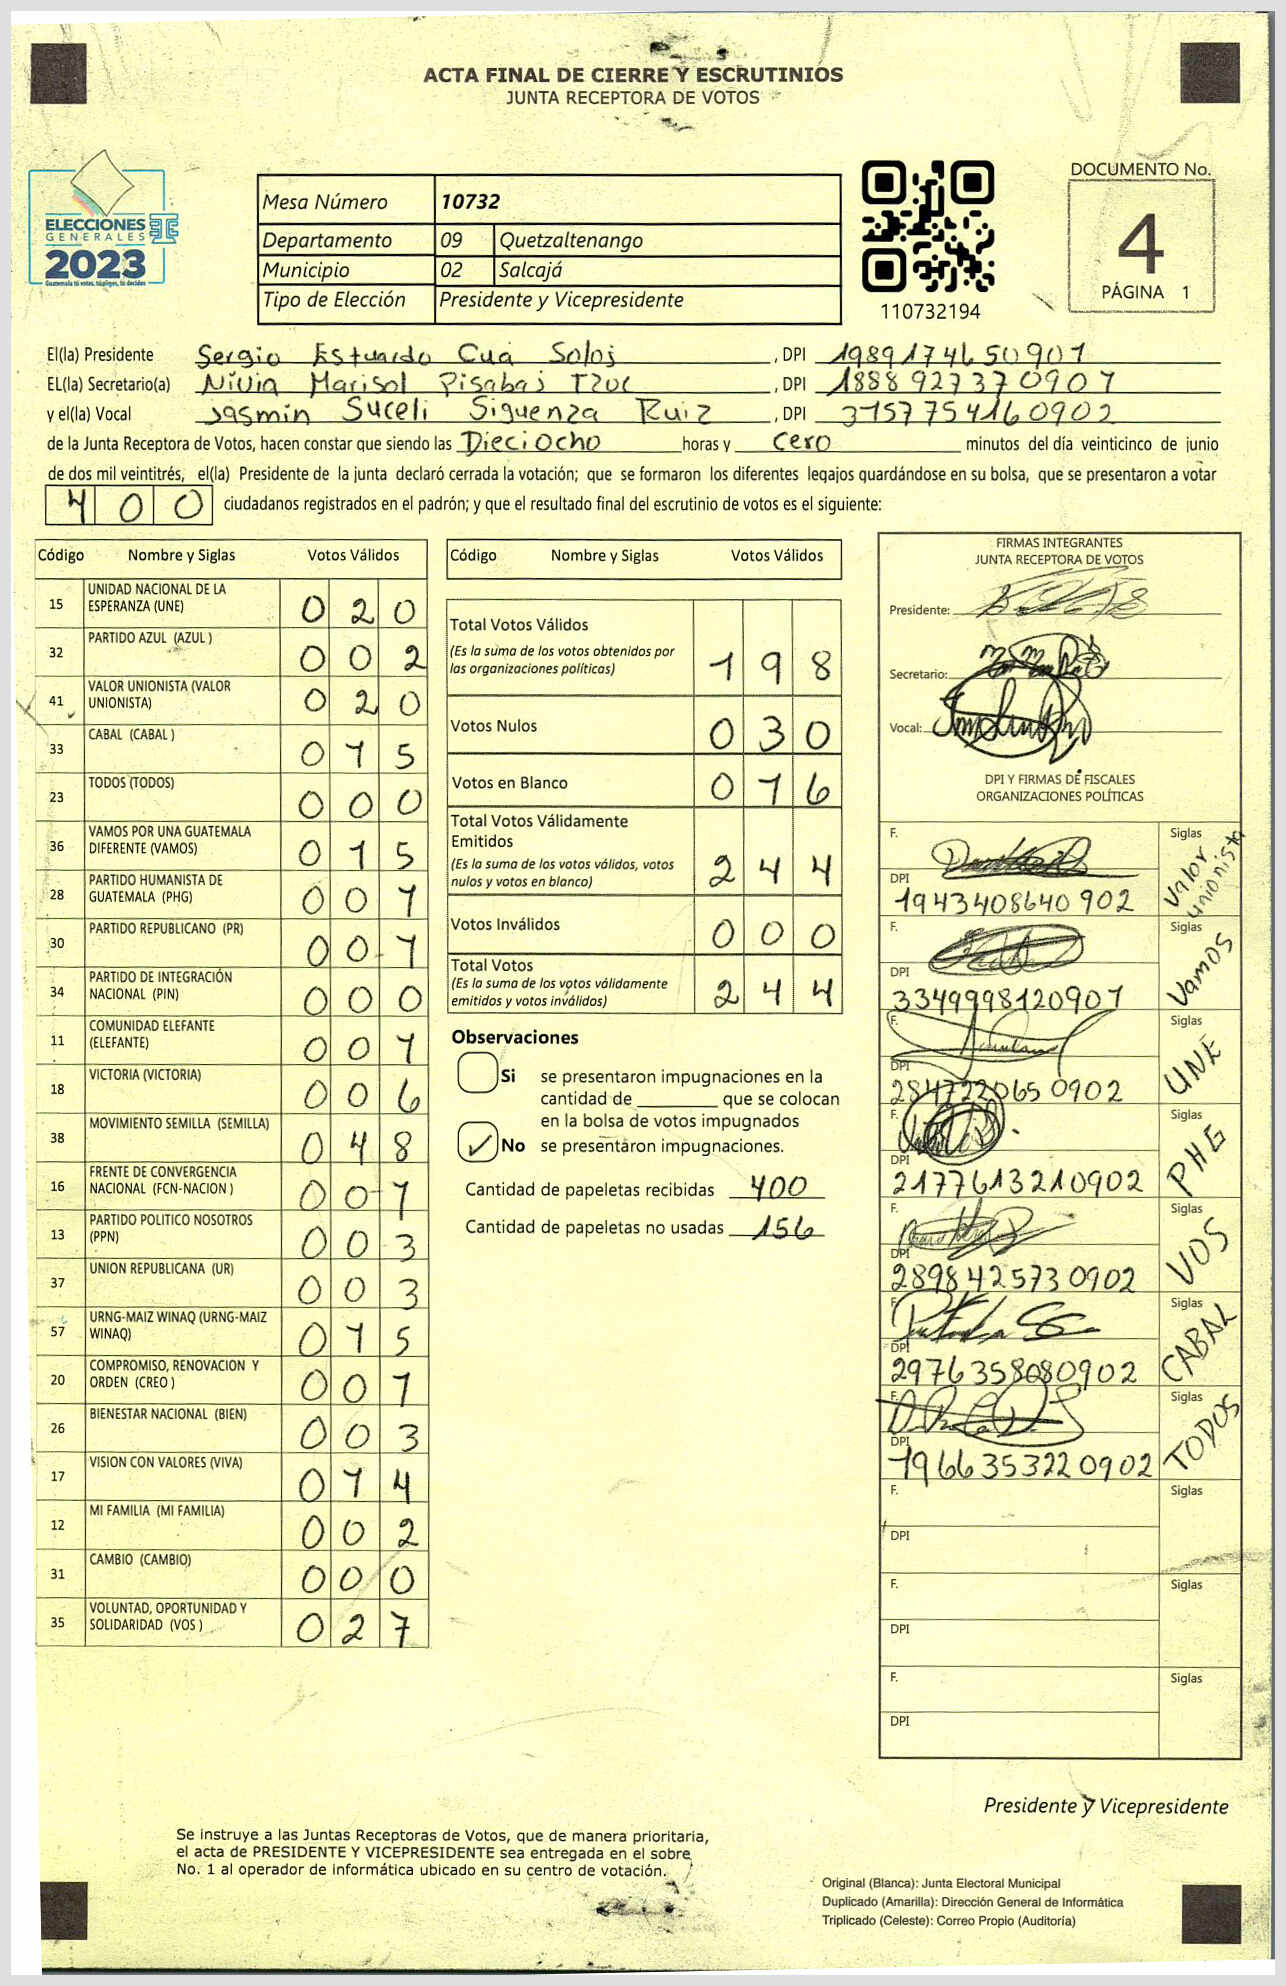 ACTA FINAL DE CIERRE Y ESCRUTINIOS
JUNTA RECEPTORA DE VOTOS
ELECCIONES
GENERALES
2023
Guatemala tú votes, túeliges, tú decides
Mesa Número 10732
Departamento 09 Quetzaltenango
Municipio 02 Salcajá
Tipo de Elección Presidente y Vicepresidente
110732194
DOCUMENTO No.
4
PÁGINA 1
El(la) Presidente Sergio Estuardo Cua Soloj , DPI 1989174650901
EL(la) Secretario(a) Nivia Marisol Pisabaj Tzoc , DPI 1888927370901
y el(la) Vocal Jasmin Suceli Siguenza Ruiz , DPI 3157754160902
de la Junta Receptora de Votos, hacen constar que siendo las Dieciocho horas y Cero minutos del día veinticinco de junio
de dos mil veintitrés, el(la) Presidente de la junta declaró cerrada la votación; que se formaron los diferentes legajos guardándose en su bolsa, que se presentaron a votar
400 ciudadanos registrados en el padrón; y que el resultado final del escrutinio de votos es el siguiente:
Código Nombre y Siglas Votos Válidos
15 UNIDAD NACIONAL DE LA ESPERANZA (UNE) 020
32 PARTIDO AZUL (AZUL ) 002
41 VALOR UNIONISTA (VALOR UNIONISTA) 020
33 CABAL (CABAL ) 015
23 TODOS (TODOS) 000
36 VAMOS POR UNA GUATEMALA DIFERENTE (VAMOS) 015
28 PARTIDO HUMANISTA DE GUATEMALA (PHG) 001
30 PARTIDO REPUBLICANO (PR) 001
34 PARTIDO DE INTEGRACIÓN NACIONAL (PIN) 000
11 COMUNIDAD ELEFANTE (ELEFANTE) 001
18 VICTORIA (VICTORIA) 006
38 MOVIMIENTO SEMILLA (SEMILLA) 048
16 FRENTE DE CONVERGENCIA NACIONAL (FCN-NACION ) 001
13 PARTIDO POLITICO NOSOTROS (PPN) 003
37 UNION REPUBLICANA (UR) 003
57 URNG-MAIZ WINAQ (URNG-MAIZ WINAQ) 015
20 COMPROMISO, RENOVACION Y ORDEN (CREO ) 001
26 BIENESTAR NACIONAL (BIEN) 003
17 VISION CON VALORES (VIVA) 014
12 MI FAMILIA (MI FAMILIA) 002
31 CAMBIO (CAMBIO) 000
35 VOLUNTAD, OPORTUNIDAD Y SOLIDARIDAD (VOS ) 027
Código Nombre y Siglas Votos Válidos
Total Votos Válidos
(Es la suma de los votos obtenidos por
las organizaciones políticas) 198
Votos Nulos 030
Votos en Blanco 016
Total Votos Válidamente
Emitidos
(Es la suma de los votos válidos, votos
nulos y votos en blanco) 244
Votos Inválidos 000
Total Votos
(Es la suma de los votos válidamente
emitidos y votos inválidos) 244
Observaciones
Si se presentaron impugnaciones en la
cantidad de ________ que se colocan
en la bolsa de votos impugnados
✓ No se presentaron impugnaciones.
Cantidad de papeletas recibidas 400
Cantidad de papeletas no usadas 156
FIRMAS INTEGRANTES
JUNTA RECEPTORA DE VOTOS
Presidente:
Secretario:
Vocal:
DPI Y FIRMAS DE FISCALES
ORGANIZACIONES POLÍTICAS
F. Siglas Valor unionista
DPI 1943408640902
F. Siglas Vamos
DPI 3349998120901
F. Siglas UNE
DPI 2847220650902
F. Siglas PHG
DPI 2177613210902
F. Siglas VOS
DPI 2898425730902
F. Siglas CABAL
DPI 2976358080902
F. Siglas TODOS
DPI 1966353220902
F. Siglas
DPI
F. Siglas
DPI
F. Siglas
DPI
Presidente y Vicepresidente
Se instruye a las Juntas Receptoras de Votos, que de manera prioritaria,
el acta de PRESIDENTE Y VICEPRESIDENTE sea entregada en el sobre
No. 1 al operador de informática ubicado en su centro de votación.
Original (Blanca): Junta Electoral Municipal
Duplicado (Amarilla): Dirección General de Informática
Triplicado (Celeste): Correo Propio (Auditoría)